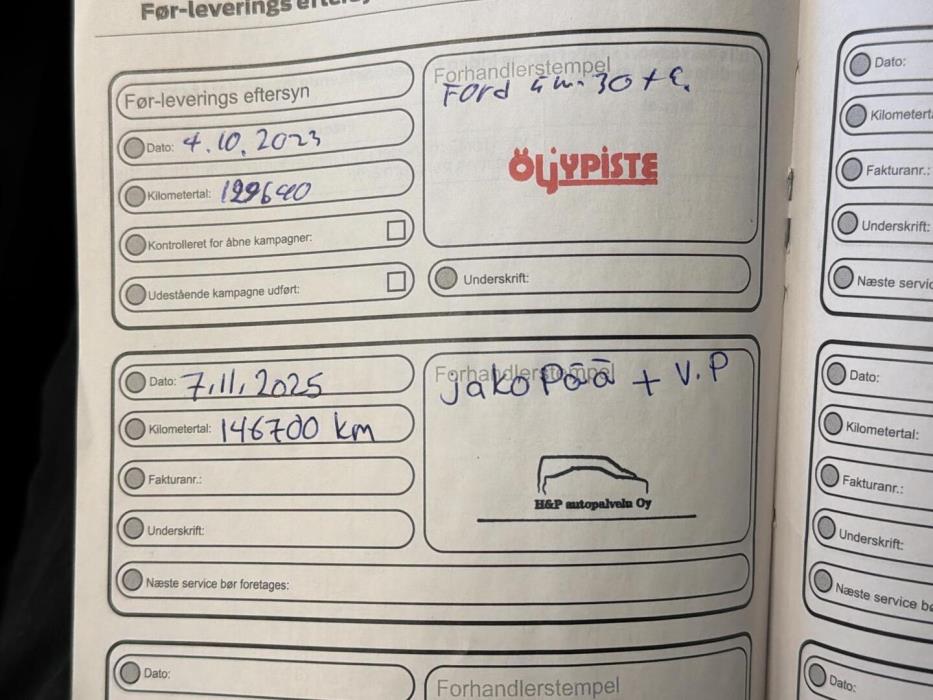 Før-leverings
Før-leverings eftersyn
Dato: 4.10.2023
Kilometertal: 129640
Kontrolleret for åbne kampagner:
Udestående kampagne udført:
Forhandlerstempel
Ford
ÖLJYPISTE
Underskrift:
Dato: 7.11.2025
Kilometertal: 146700 km
Fakturanr.:
Underskrift:
Næste service bør foretages:
Forhandlerstempel
jakopää + V.P
H&P autopalvelu Oy
Dato:
Forhandlerstempel
Dato:
Kilometert
Fakturanr.:
Underskrift:
Næste servic
Dato:
Kilometertal:
Fakturanr.:
Underskrift:
Næste service bø
Dato: